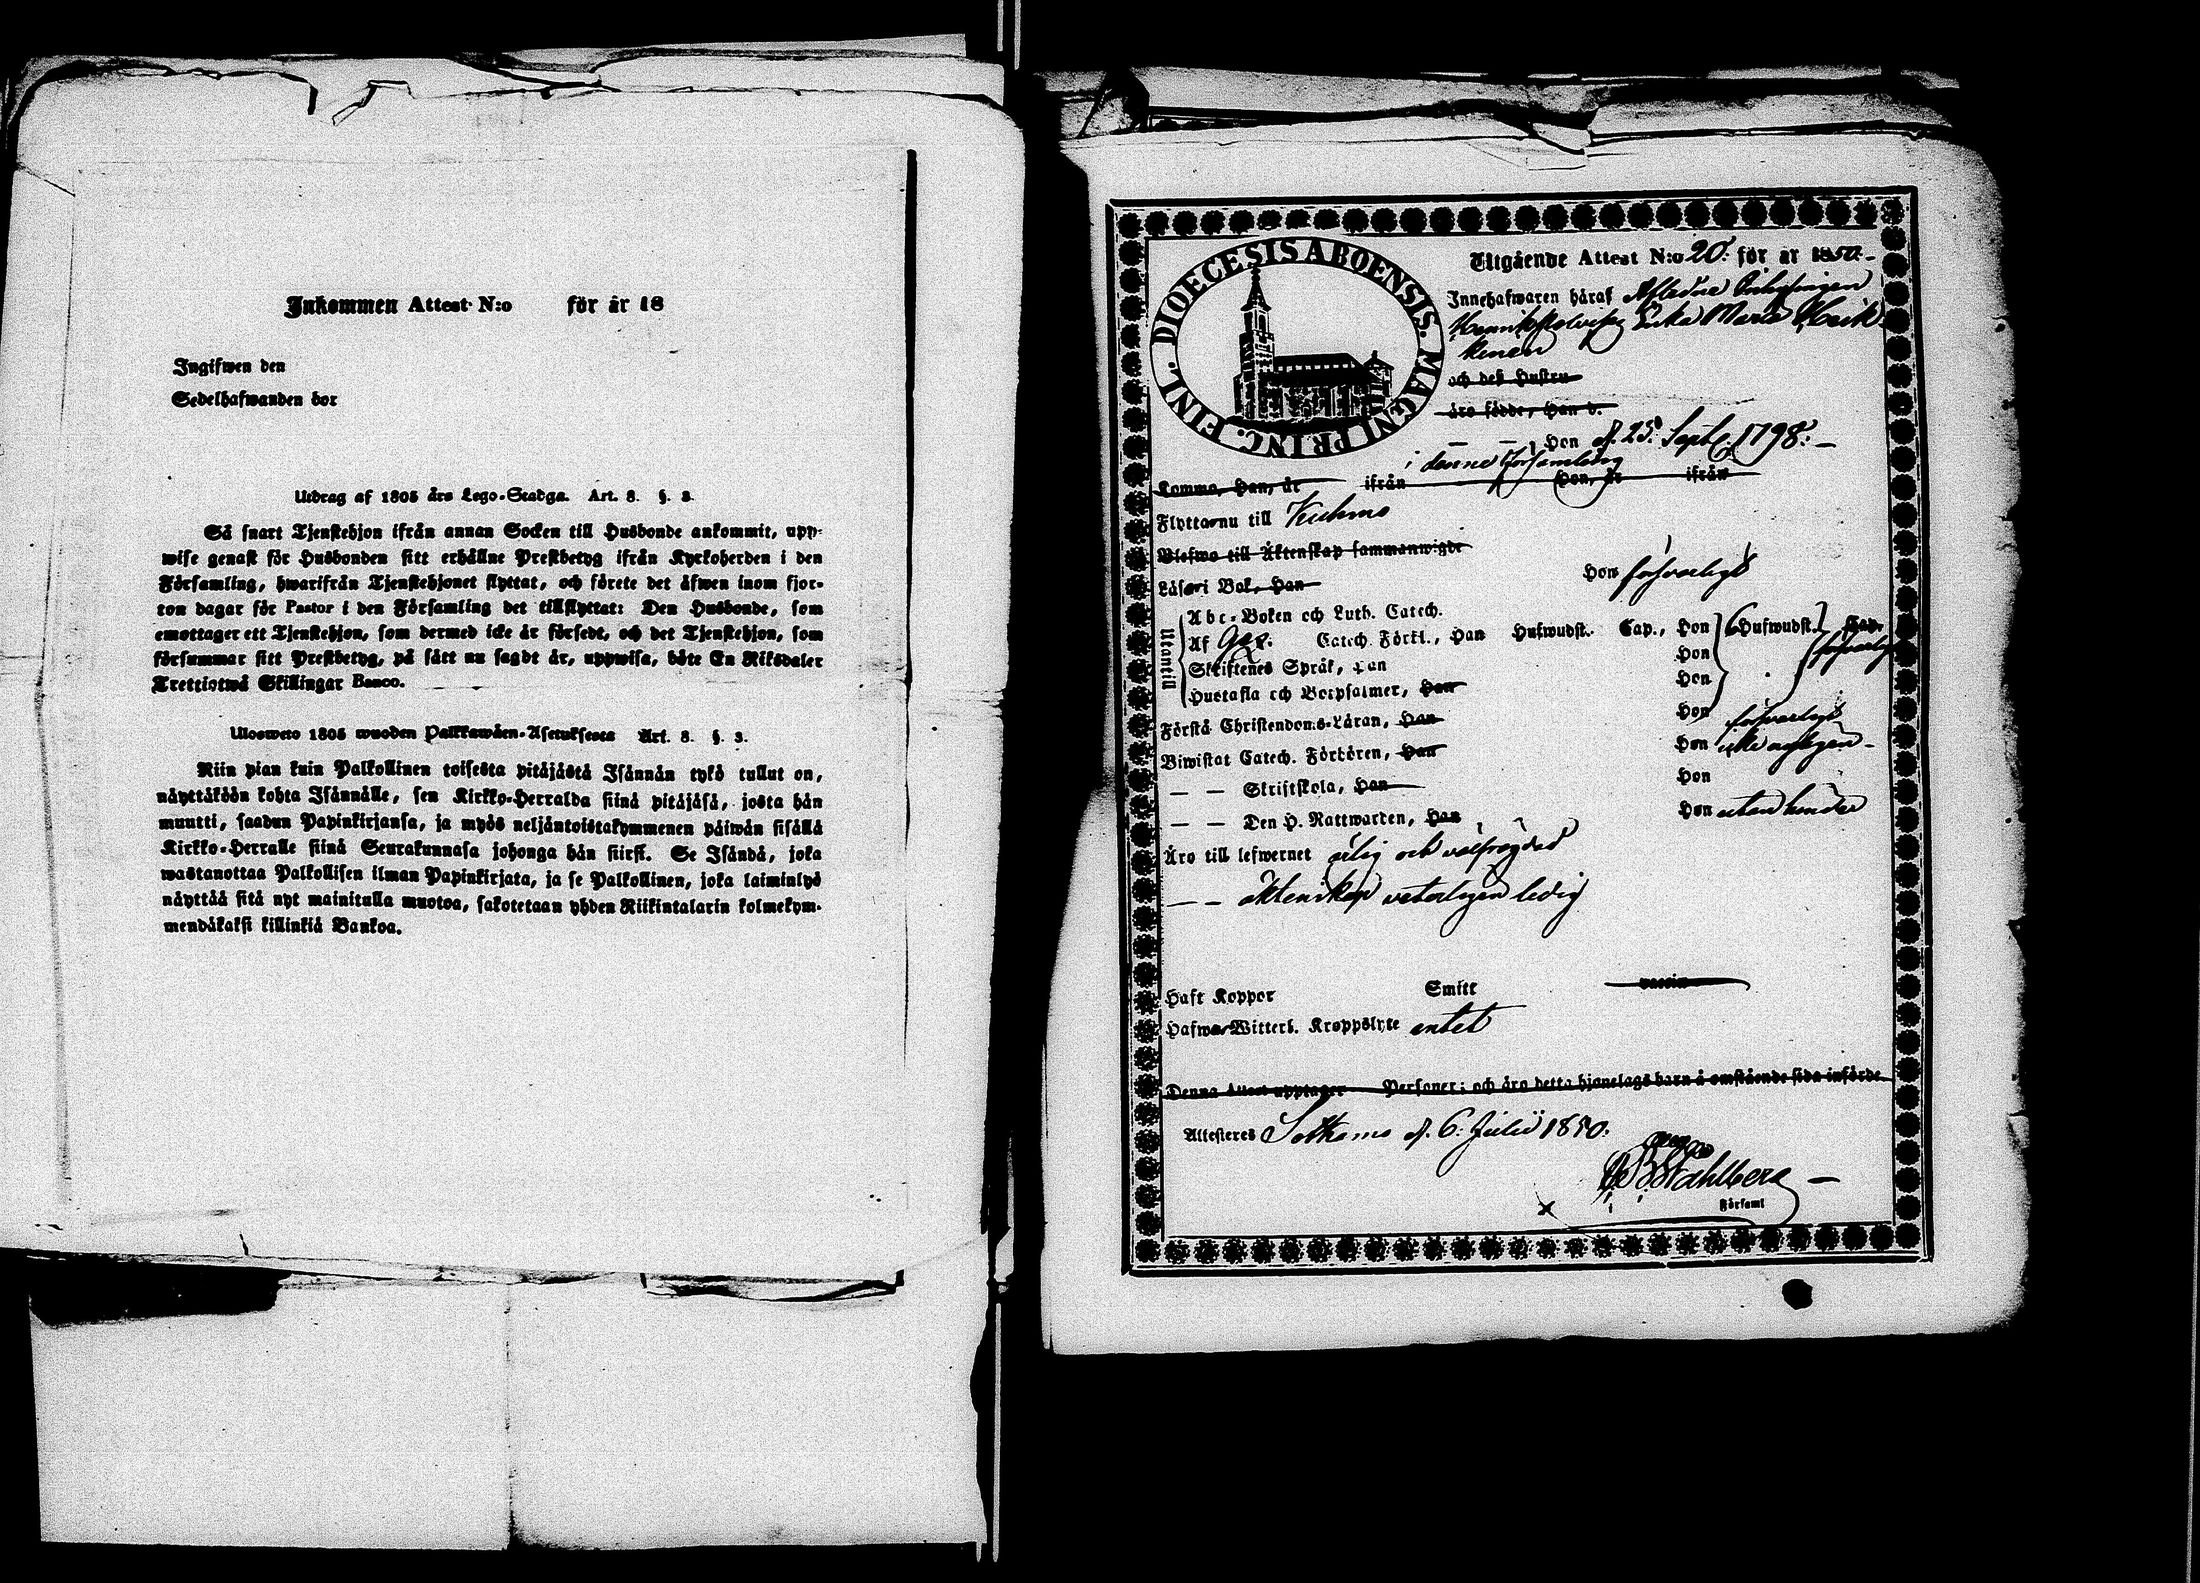 Inkommen Attest N:o för år 18
Ingifwen den
Sedelhafwanden bor
Utdrag af 1805 års Lego-Stadga. Art. 8. §. 3.
Så snart Tjenstehjon ifrån annan Socken till Husbonde ankommit, upp-
wise genast för Husbonden sitt erhållne Prestbetyg ifrån Kyrkoherden i den
Församling, hwarifrån Tjenstehjonet flyttat, och förete det äfwen inom fjor-
ton dagar för Pastor i den Församling det tillflyttat: Den Husbonde, som
emottager ett Tjenstehjon, som dermed icke är försedt, och det Tjenstehjon, som
försummar sitt Prestbetyg, på sätt nu sagdt är, uppwisa, böte En Riksdaler
Trettiotwå Skillingar Banco.
Ulosweto 1805 wuoden Palkkawäen-Asetuksesta Art. 8. §. 3.
Niin pian kuin Palkollinen toisesta pitäjästä Isännän tykö tullut on,
näyttäköön kohta Isännälle, sen Kirkko-Herralda siinä pitäjäsä, josta hän
muutti, saadun Papinkirjansa, ja myös neljäntoistakymmenen päiwän sisällä
Kirkko-Herralle siinä Seurakunnasa johonga hän siirsi. Se Isändä, joka
wastanottaa Palkollisen ilman Papinkirjata, ja se Palkollinen, joka laiminlyö
näyttää sitä nyt mainitulla muotoa, sakotetaan yhden Riikintalarin kolmekym-
mendäkaksi killinkiä Bankoa.
DIOECESIS ABOENSIS. MAGNI PRINC. FINL.
Utgående Attest N:o 20. för år 1850.
Innehafwaren häraf Afledne Inhysingen
Erika Maria Heik
kinen
och deß Hustru
äro födde, Han d.
— — , Hon d. 25. Sept. 1798. —
i denne församling
Kommo, Han, år ifrån Hon, år ifrån
Flytta nu till Kuhmo
Blefwo till Äktenskap sammanwigde
Läsa i Bok, Han Hon försvarligt
Utantill
Abc-Boken och Luth. Catech.
Af Catech. Förkl., Han Hufwudst. Cap., Hon 6 Hufwudst. Cap.
Hon försvarligt
Skriftenes Språk, Han Hon
Hustafla och Botpsalmer, Han Hon
Förstå Christendoms-Läran, Han försvarligt
Biwistat Catech. Förhören, Han Hon icke nyligen —
— — Skriftskola, Han Hon
— — Den H. Nattwarden, Han Hon utan hinder
Äro till lefwernet ärlig och välfrägdad
— — äktenskap veterligen ledig
Haft Koppor Smitt vaccin
Hafwa Witterl. Kroppslyte intet
Denna Attest upptager Personer; och äro detta hjonelags barn å omstående sida införde
Attesteras Sotkamo d. 6. Julii 1850.
Ståhlberg —
Församl